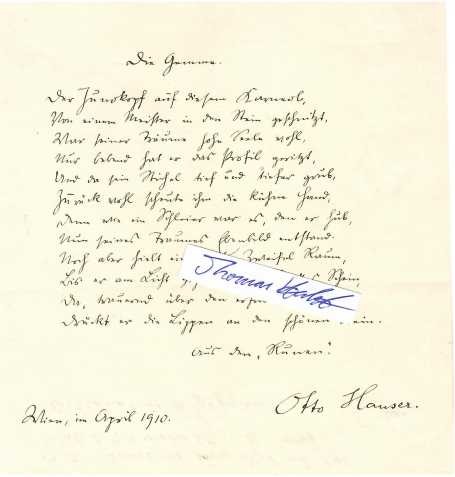 Die Gemme.
Der Junokopf auf diesem Karneol,
Von einem Meister in den Stein geschnitzt,
War seiner Träume hohe Seele wohl,
Nur bebend hat er das Profil geritzt,
Und da sein Stichel tief und tiefer grub,
Zurück wohl scheute ihm die kühne Hand,
Denn wie ein Schleier war es, den er hub,
Nun seines Traumes Ebenbild entstand.
Noch aber hielt Zweifel Raum,
Bis er am Licht Schein,
Da, trauernd über den
Drückt er die Lippen an den schönen ein.
Aus den „Runen".
Thomas
Wien, im April 1910.
Otto Hauser.